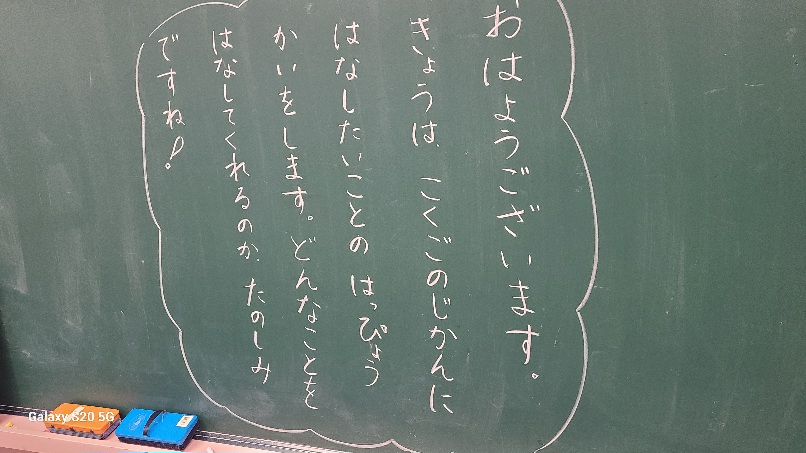 おはようございます。
きょうは、こくごのじかんに
はなしたいことの はっぴょう
かいをします。どんなことを
はなしてくれるのか、たのしみ
ですね!
Galaxy S20 5G